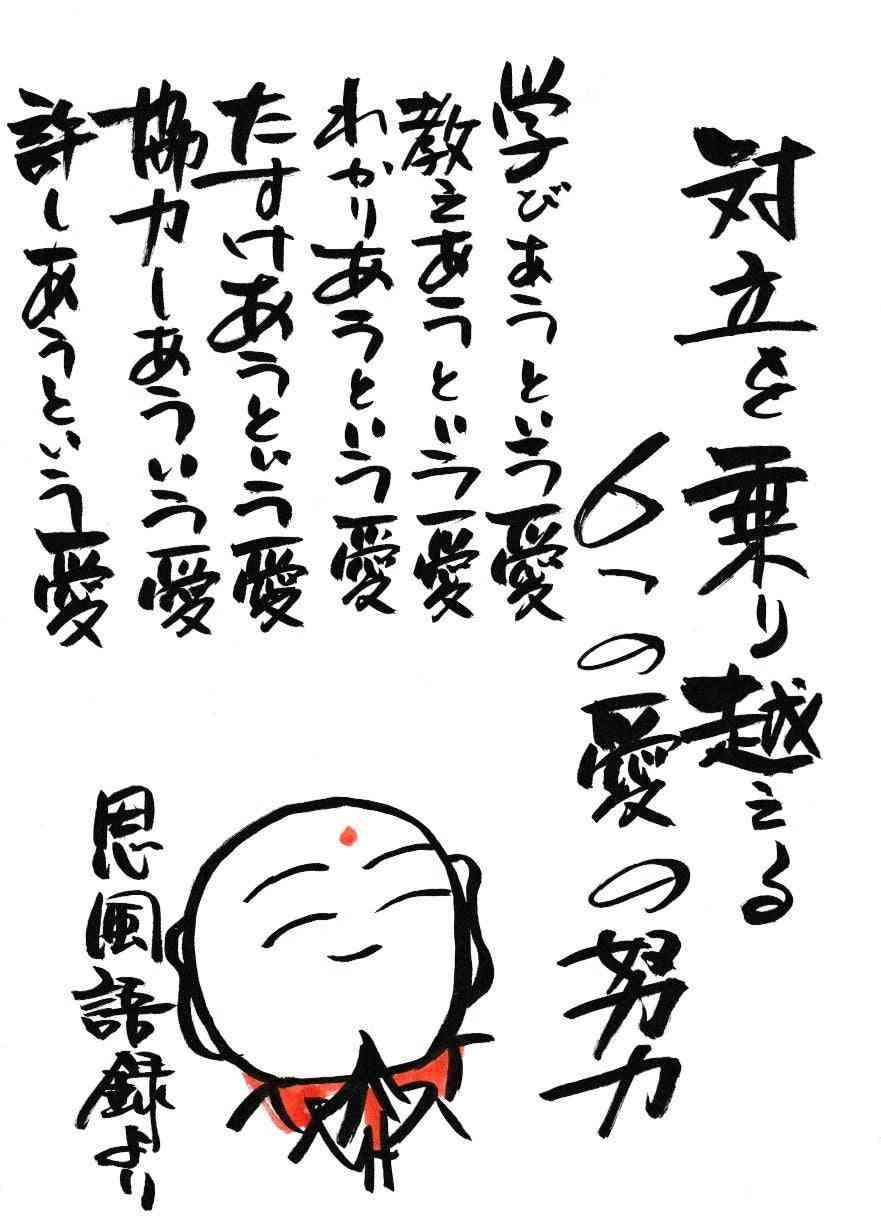 対立を乗り越える
6つの愛の努力
学びあうという愛
教えあうという愛
わかりあうという愛
たすけあうという愛
協力しあういう愛
許しあうという愛
恩風語録より